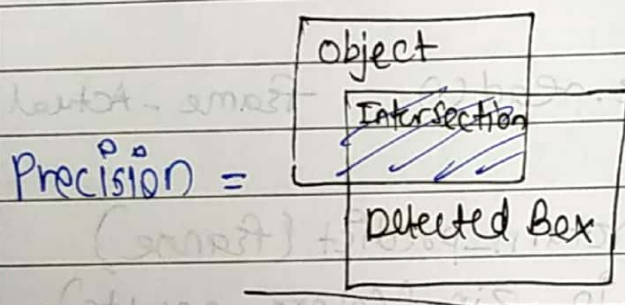 Object
Intersection
Precision =
Detected Box